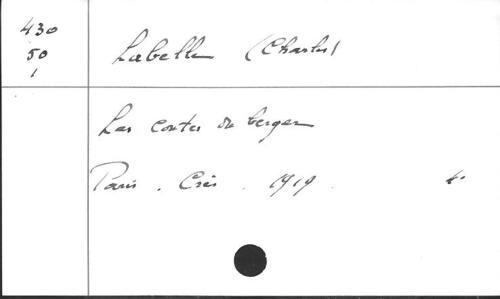 430
50
1
Labelle (Charles)
Les contes du berger
Paris. Crès. 1919.